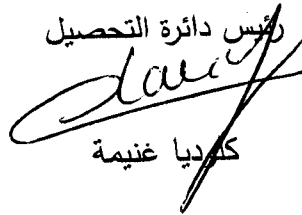 رئيس دائرة التحصيل
كلوديا غنيمة